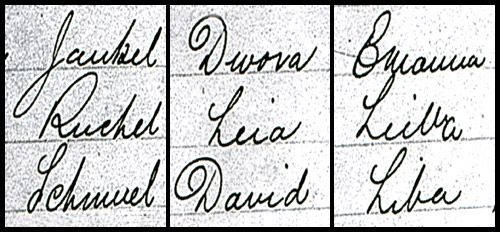 Jankel
Ruchel
Schmuel
Dwora
Leia
David
Emanna
Leiba
Liba